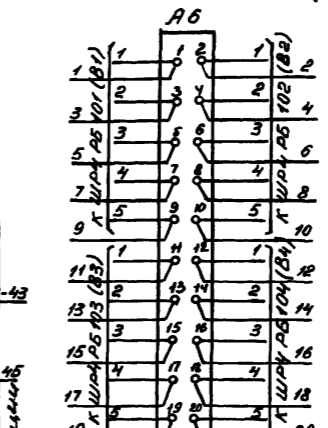 А6
1 1 2 1 2
3 2 3 4 2 4
5 3 5 6 3 6
7 4 7 8 4 8
9 5 9 10 5 10
К ШР4 РБ 101 (В1)
К ШР4 РБ 102 (В2)
11 1 11 12 1 12
13 2 13 14 2 14
15 3 15 16 3 16
17 4 17 18 4 18
5 19 20 5
К ШР4 РБ 103 (В3)
К ШР4 РБ 104 (В4)
-43